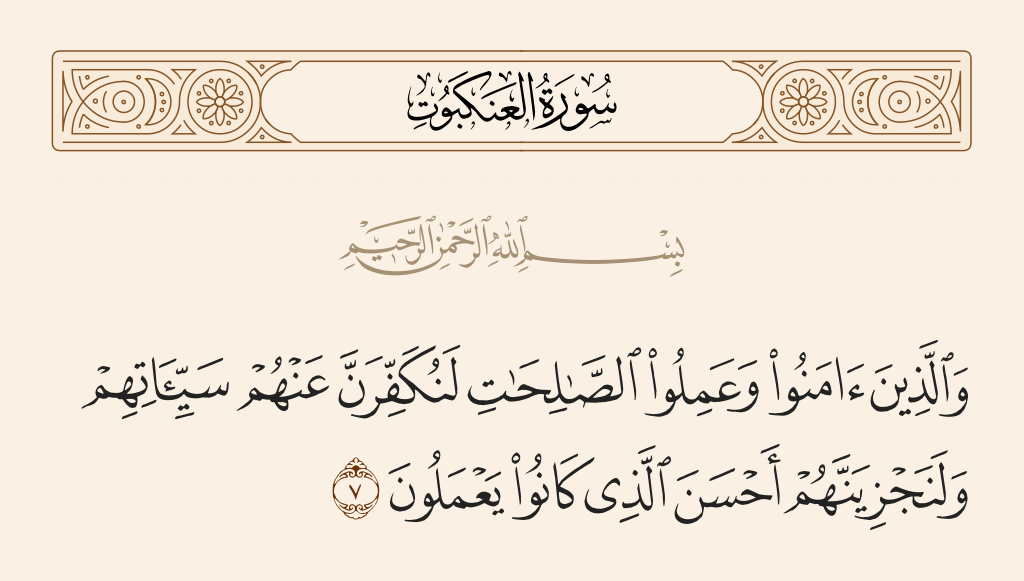 سُورَةُ العَنكَبُوتِ
بِسْمِ ٱللَّهِ ٱلرَّحْمَٰنِ ٱلرَّحِيمِ
وَٱلَّذِينَ ءَامَنُوا۟ وَعَمِلُوا۟ ٱلصَّـٰلِحَـٰتِ لَنُكَفِّرَنَّ عَنْهُمْ سَيِّـَٔاتِهِمْ
وَلَنَجْزِيَنَّهُمْ أَحْسَنَ ٱلَّذِى كَانُوا۟ يَعْمَلُونَ ٧